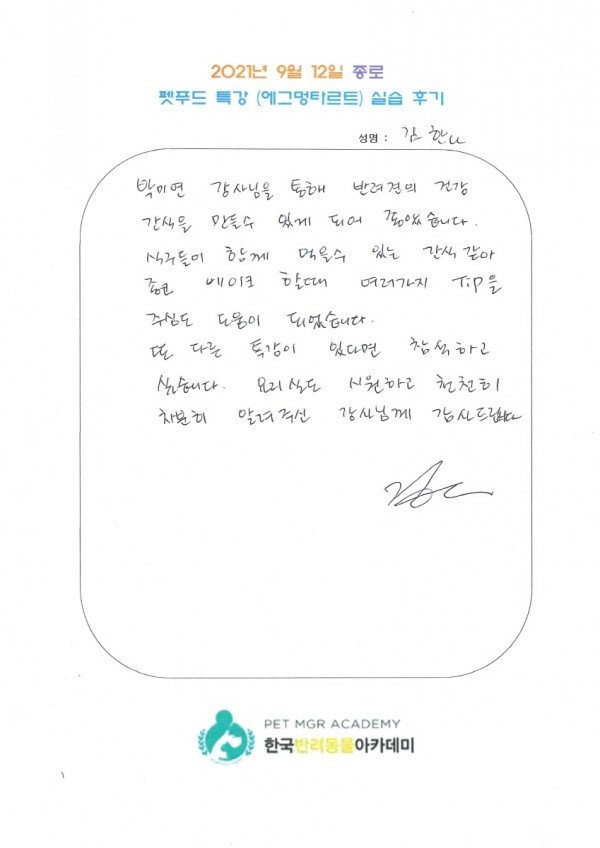 2021년 9월 12일 종로
펫푸드 특강 (에그멍타르트) 실습 후기
성명 : 김한나
박미연 강사님을 통해 반려견의 건강
간식을 만들수 있게 되어 좋았습니다.
식구들이 함께 먹을수 있는 간식 같아
베이크 할때 여러가지 Tip을
주심도 도움이 되었습니다.
또 다른 특강이 있다면 참석하고
싶습니다. 요리실도 시원하고 천천히
차분히 알려주신 강사님께 감사드립니다
PET MGR ACADEMY
한국반려동물아카데미